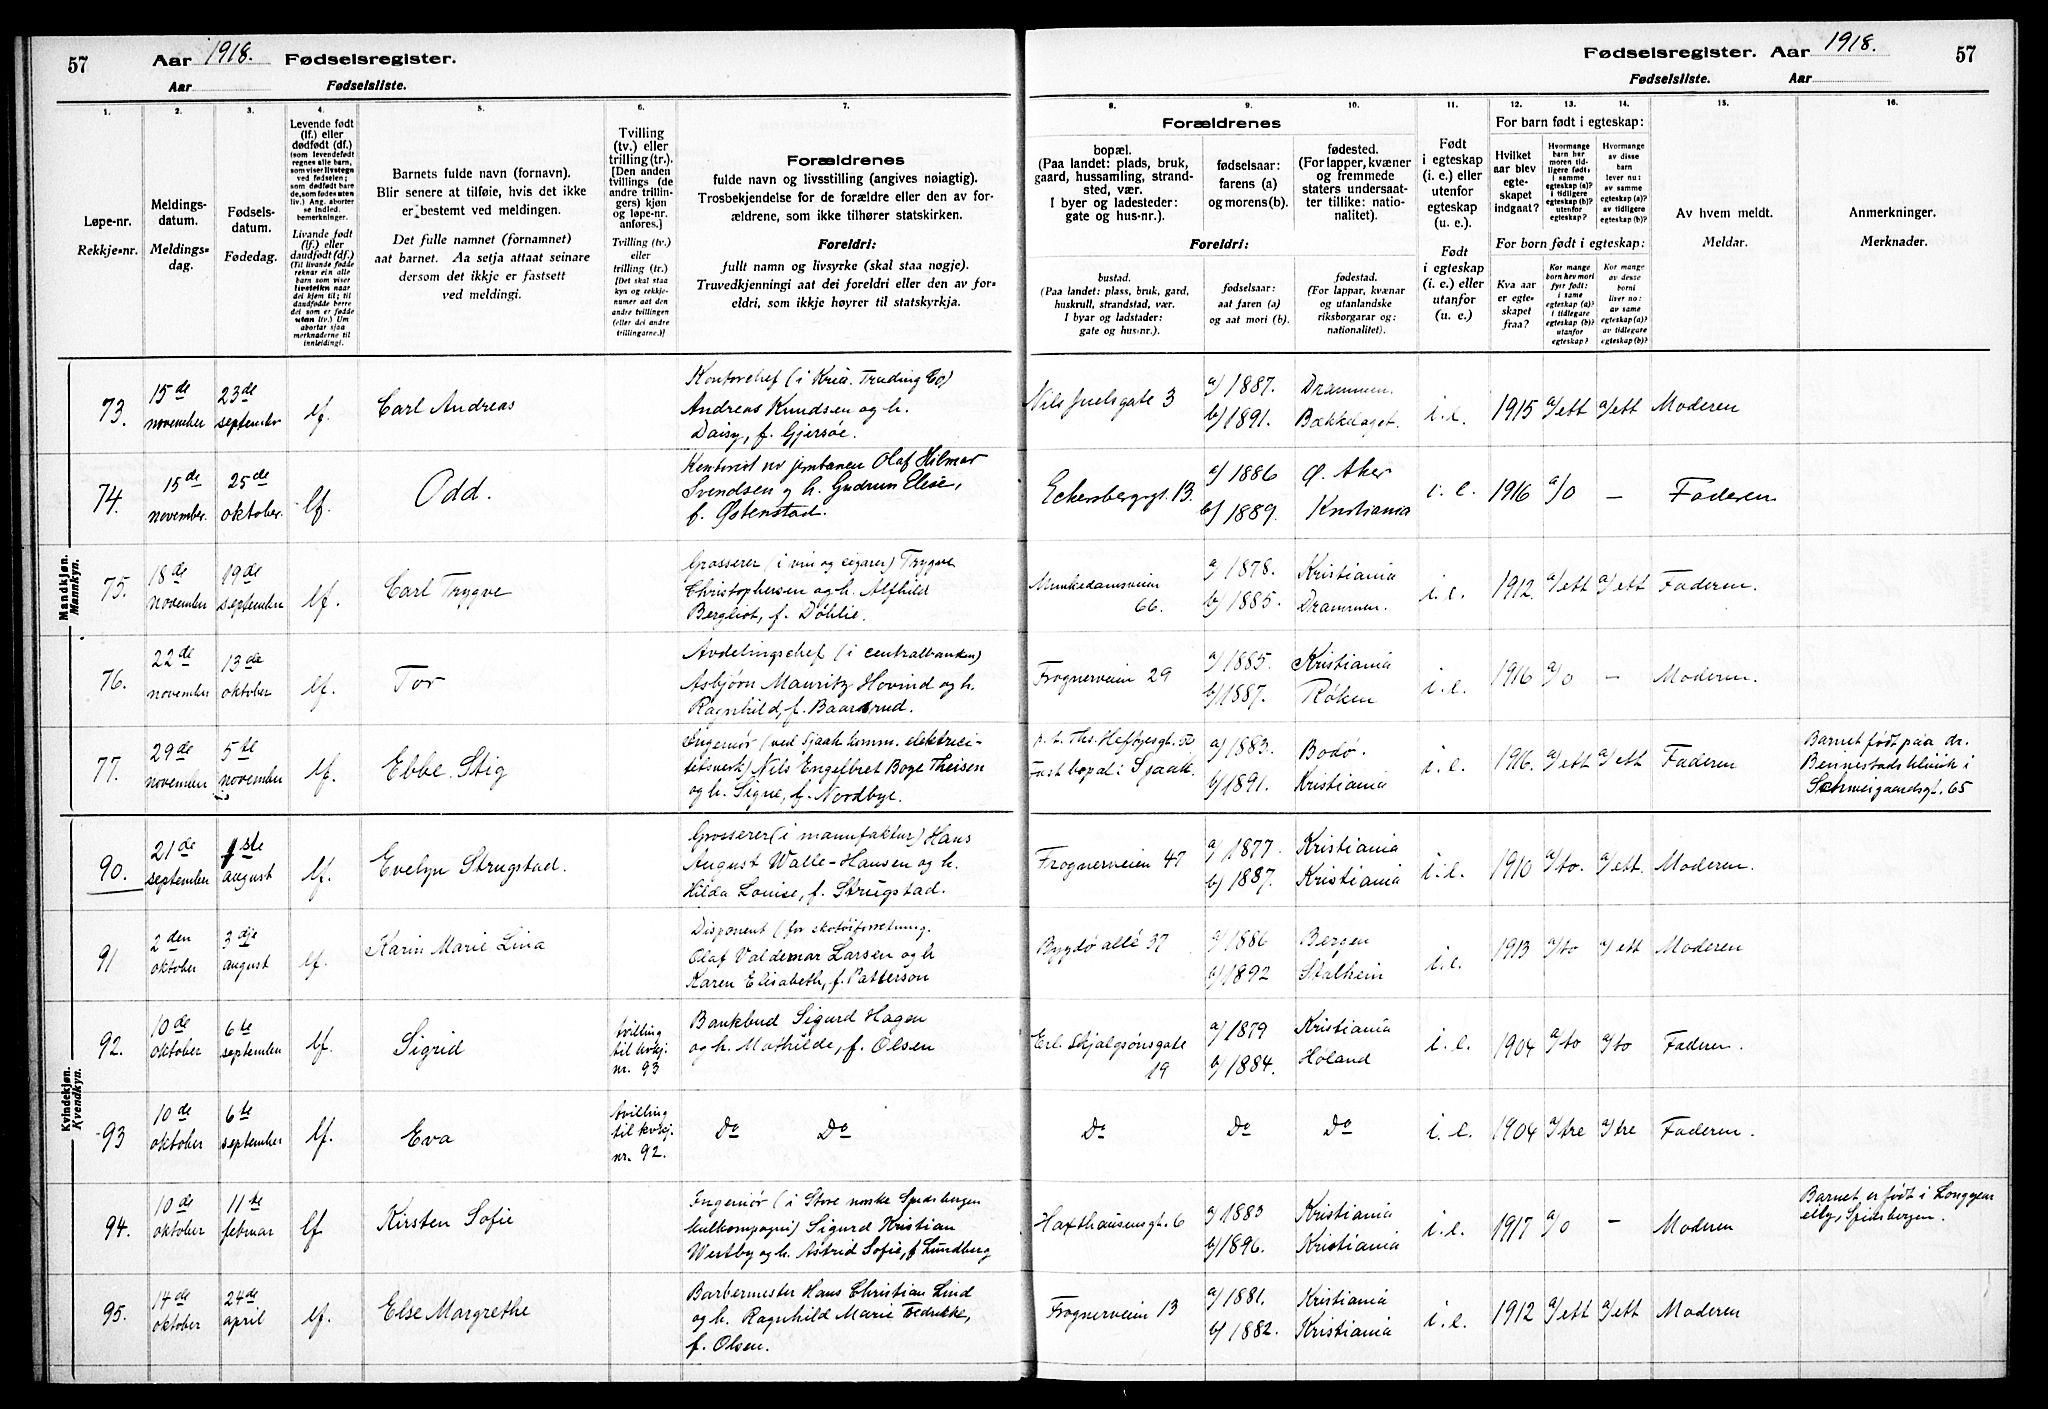 57 Aar 1918. Fødselsregister.
Aar Fødselsliste.
Fødselsregister. Aar 1918. 57
Fødselsliste. Aar
1. 2. 3. 4. 5. 6. 7.
Løpe-nr.
Rekkje-nr.
Meldings-
datum.
Meldings-
dag.
Fødsels-
datum.
Fødedag.
Levende født
(lf.) eller
dødfødt (df.)
(som levendefødt
regnes alle barn,
som viser livstegn
ved fødselen;
som dødfødt bare
de, som fødes uten
liv.) Ang. aborter
se indled.
bemerkninger.
Livande født
(lf.) eller
daudfødt (df.)
(Til livande fødde
reknar ein alle
barn som viser
livsteikn naar
dei kjem til; til
daudfødde berre
dei som er fødde
utan liv.) Um
abortar sjaa
merknaderne til
innleidingi.
Barnets fulde navn (fornavn).
Blir senere at tilføie, hvis det ikke
er bestemt ved meldingen.
Det fulle namnet (fornamnet)
aat barnet. Aa setja attaat seinare
dersom det ikkje er fastsett
ved meldingi.
Tvilling
(tv.) eller
trilling (tr.).
[Den anden
tvillings (de
andre trillin-
gers) kjøn
og løpe-nr.
anføres.]
Tvilling (tv.)
eller
trilling (tr.)
[Det skal staa
kyn og rekkje-
numer aat den
andre tvillingen
(eller dei andre
trillingarne.)]
Forældrenes
fulde navn og livsstilling (angives nøiagtig).
Trosbekjendelse for de forældre eller den av for-
ældrene, som ikke tilhører statskirken.
Foreldri:
fullt namn og livsyrke (skal staa nøgje).
Truvedkjenningi aat dei foreldri eller den av for-
eldri, som ikkje høyrer til statskyrkja.
8. 9. 10. 11. 12. 13. 14. 15. 16.
Forældrenes
bopæl.
(Paa landet: plads, bruk,
gaard, hussamling, strand-
sted, vær.
I byer og ladesteder:
gate og hus-nr.).
fødselsaar:
farens (a)
og morens (b).
fødested.
(For lapper, kvæner
og fremmede
staters undersaat-
ter tillike: natio-
nalitet).
Foreldri:
bustad.
(Paa landet: plass, bruk, gard,
huskrull, strandstad, vær.
I byar og ladstader:
gate og hus-nr.).
fødselsaar:
aat faren (a)
og aat mori (b).
fødestad.
(For lappar, kvænar
og utanlandske
riksborgarar og:
nationalitet).
Født
i egteskap
(i. e.) eller
utenfor
egteskap
(u. e.).
Født
i egteskap
(i. e.) eller
utanfor
(u. e.)
For barn født i egteskap:
Hvilket
aar blev
egte-
skapet
indgaat?
Hvormange
barn har
moren tid-
ligere født,
i samme
egteskap (a)?
i tidligere
egteskap (b)?
utenfor
egteskap?
Hvormange
av disse
barn
lever nu:
av samme
egteskap (a)?
av tidligere
egteskap (b)?
For born født i egteskap:
Kva aar
er egte-
skapet
fraa?
Kor mange
born hev mori
fyrr født:
i same
egteskap (a)?
i tidlegare
egteskap (b)?
utanfor
egteskap?
Kor mange
av desse
borni
liver no:
av same
egteskap (a)?
av tidlegare
egteskap (b)?
Av hvem meldt.
Meldar.
Anmerkninger.
Merknader.
Mandkjøn.
Mannkyn.
73. 15de november 23de september lf. Carl Andreas
Kontorchef (i Kria. Trading Co)
Andreas Knudsen og h.
Daisy, f. Gjersøe.
Nils Juelsgate 3 a/ 1887. Drammen.
b/ 1891. Bækkelaget. i. e. 1915 a/ett a/ett Moderen
74. 15de november. 25de oktober. lf. Odd.
Kontorist ved jernbanen Olaf Hilmar
Svendsen og h. Gudrun Elise,
f. Østenstad.
Eckersbergsgt. 13. a/ 1886 Ø. Aker
b/ 1889. Kristiania i. e. 1916 a/0 — Faderen
75. 18de november 19de september lf. Carl Trygve
Grosserer (i vin og cigarer) Trygve
Christophersen og h. Alfhild
Bergliot, f. Døhlie.
Munkedamsveien
66. a/ 1878. Kristiania
b/ 1885. Drammen. i. e. 1912 a/ett a/ett Faderen.
76. 22de november 13de oktober lf. Tor
Avdelingschef (i centralbanken)
Asbjørn Mauritz Hovind og h.
Ragnhild, f. Baarsrud.
Frognerveien 29 a/ 1885. Kristiania
b/ 1887. Røken i. e. 1916 a/0 — Moderen.
77. 29de november 5te november lf. Ebbe Stig
Ingeniør (ved Sjaak komm. elektrici-
tetsverk) Nils Engelbret Boye Theisen
og h. Signe, f. Nordbye.
p. t. Ths. Heftyesgt. 52
Fast bopæl i Sjaak. a/ 1883. Bodø.
b/ 1891. Kristiania i. e. 1916. a/ett a/ett Faderen
Barnet født paa dr.
Bennestads klinik i
Schweigaardsgt. 65
Kvindekjøn.
Kvendkyn.
90. 21de september 1ste august lf. Evelyn Strugstad.
Grosserer (i manufaktur) Hans
August Walle-Hansen og h.
Hilda Louise, f. Strugstad.
Frognerveien 47 a/ 1877. Kristiania
b/ 1887. Kristiania i. e. 1910 a/to. a/ett. Moderen.
91 2den oktober 3dje august lf. Karin Marie Lina
Disponent (for skotøiforretning.
Olaf Valdemar Larsen og h
Karen Elisabeth, f. Patterson
Bygdø allé 37 a/ 1886 Bergen
b/ 1892 Stalheim i. e. 1913 a/to a/ett Moderen
92. 10de oktober 6te september lf. Sigrid
tvilling
til kvkj.
nr. 93
Bankbud Sigurd Hagen
og h. Mathilde, f. Olsen
Erl. Skjalgsønsgate
19 a/ 1879 Kristiania
b/ 1884. Høland i. e. 1904 a/to a/to Faderen.
93 10de oktober 6te september lf. Eva
tvilling
til kvkj.
nr. 92.
Do Do
Do Do Do i. e. 1904 a/tre a/tre Faderen.
94. 10de oktober 11te februar lf Kirsten Sofie
Ingeniør (i Store norske Spidsbergen
kulkompagni) Sigurd Kristian
Westby og h. Astrid Sofie, f Lundberg
Haxthausensgt. 6 a/ 1883 Kristiania
b/ 1896. Kristiania i. e. 1917 a/0 — Moderen
Barnet er født i Longyear
city, Spidsbergen.
95. 14de oktober 24de april lf. Else Margrethe
Barbermester Hans Christian Lind
og h. Ragnhild Marie Fredrikke,
f. Olsen.
Frognerveien 13 a/ 1881. Kristiania
b/ 1882. Kristiania i. e. 1912 a/ett a/ett Moderen